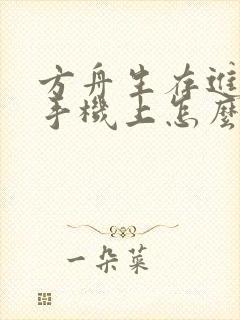 方舟生存進
手機上怎麼
一朵菜